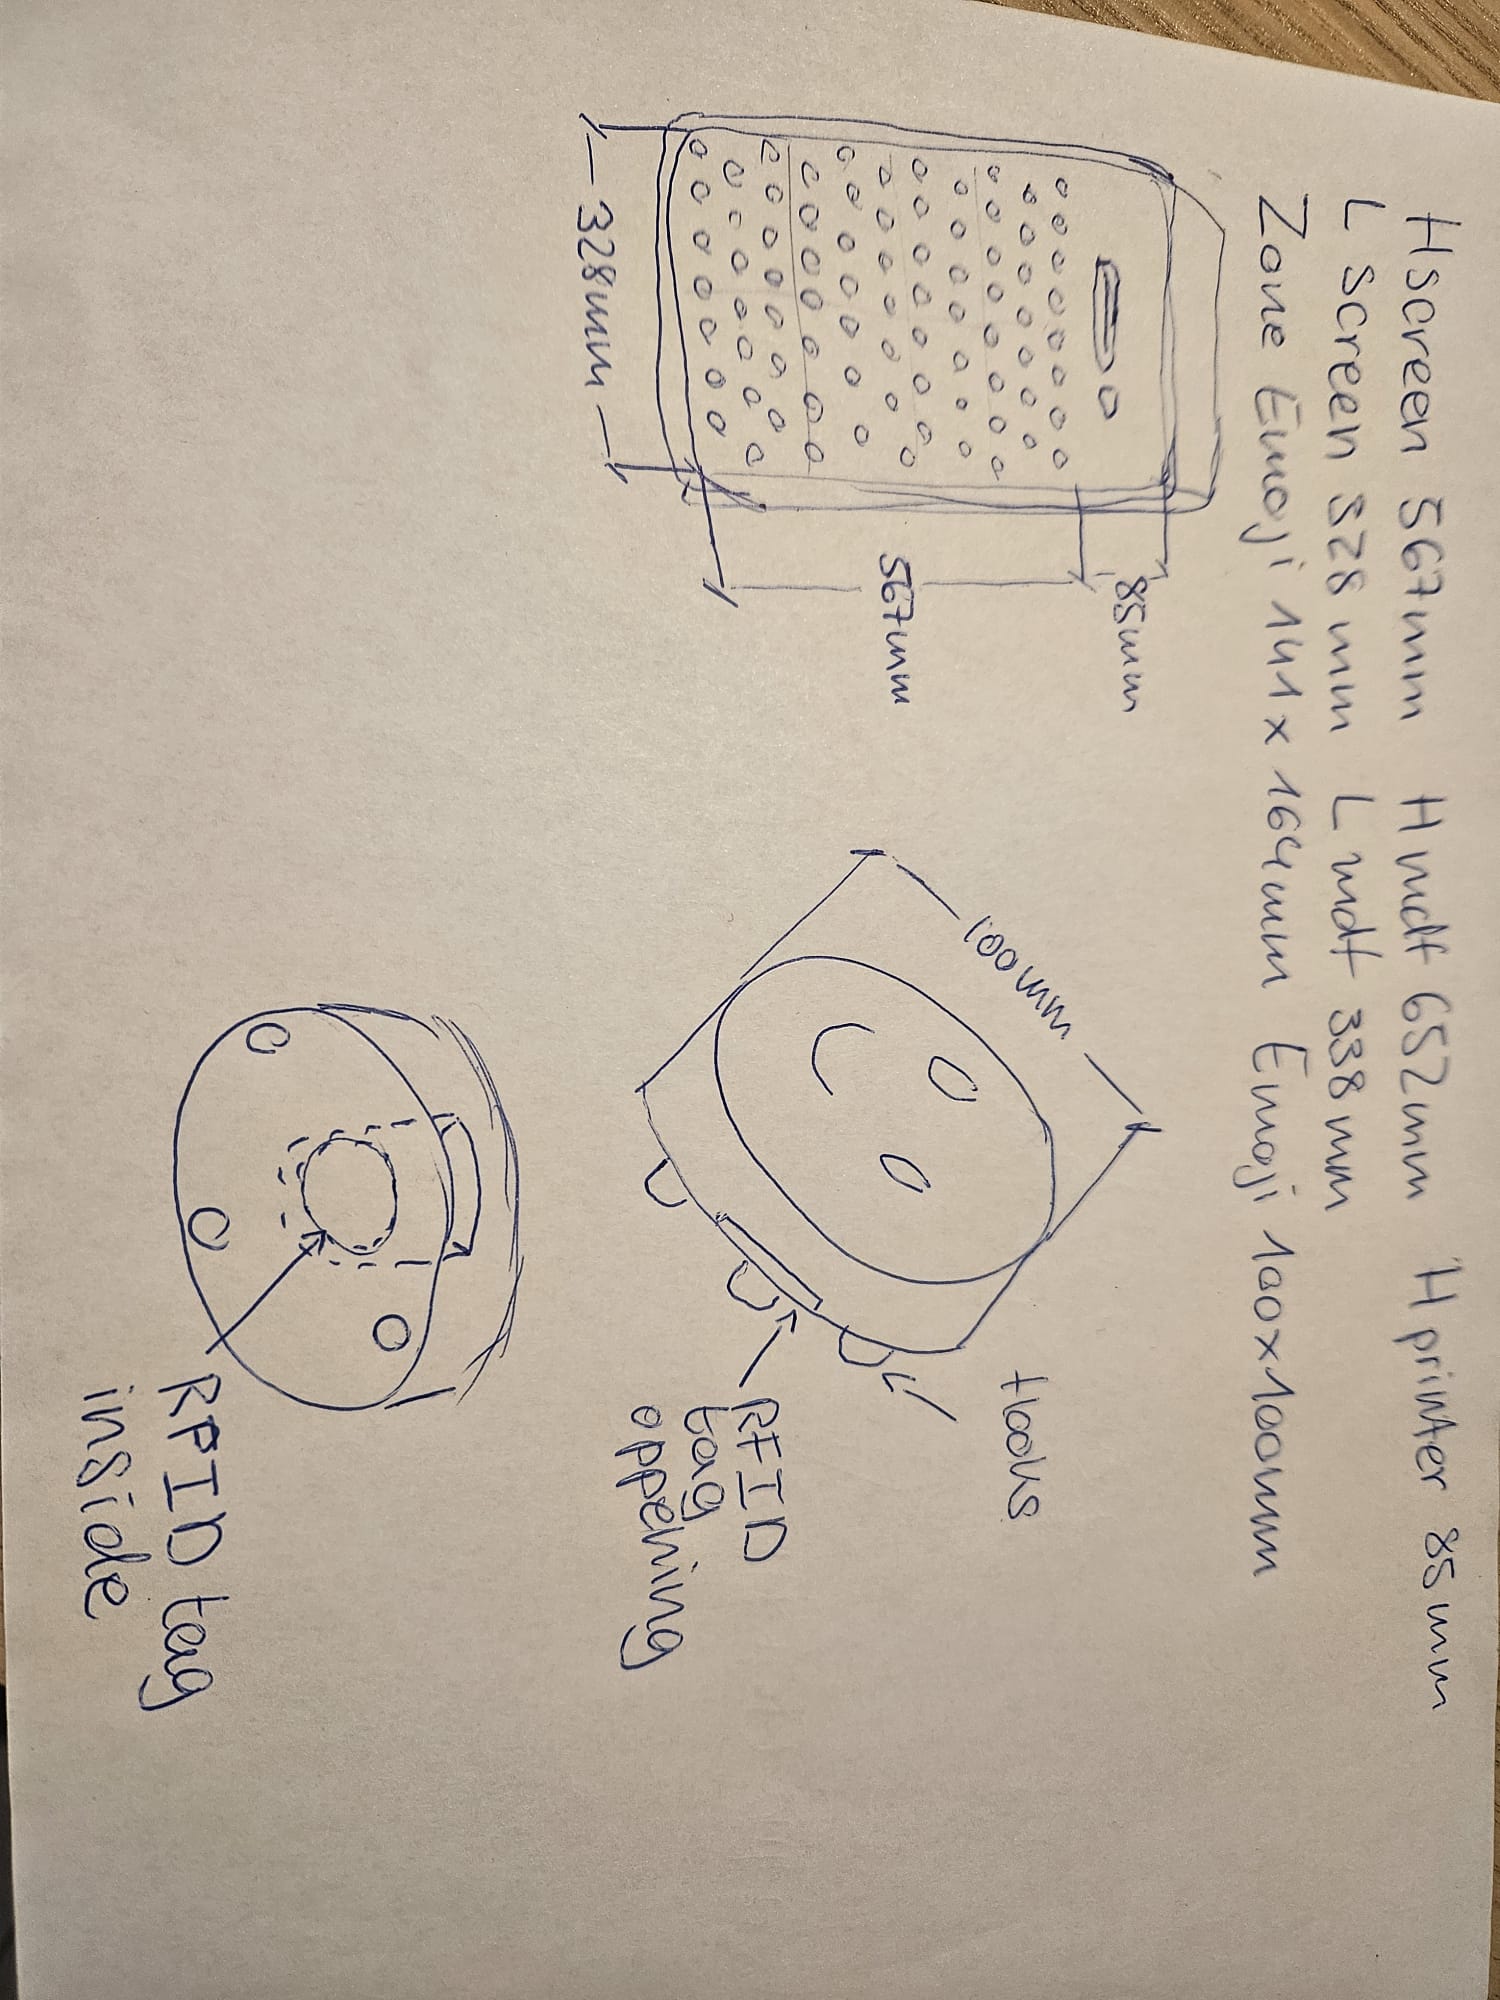 H screen 567mm H mdf 652mm H printer 85mm
L screen 328mm L mdf 338mm
Zone Emoji 141 x 164mm Emoji 100x100mm
85mm
567mm
328mm
100mm
Hooks
RFID
tag
oppening
RFID tag
inside